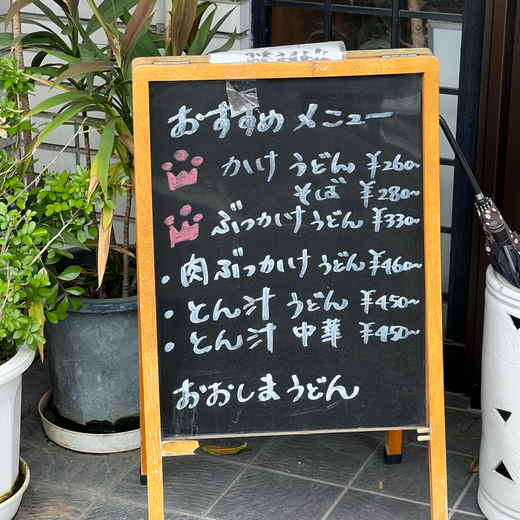 おすすめメニュー
かけ うどん ¥260~
そば ¥280~
ぶっかけうどん ¥330~
・肉ぶっかけうどん ¥460~
・とん汁 うどん ¥450~
・とん汁 中華 ¥450~
おおしまうどん